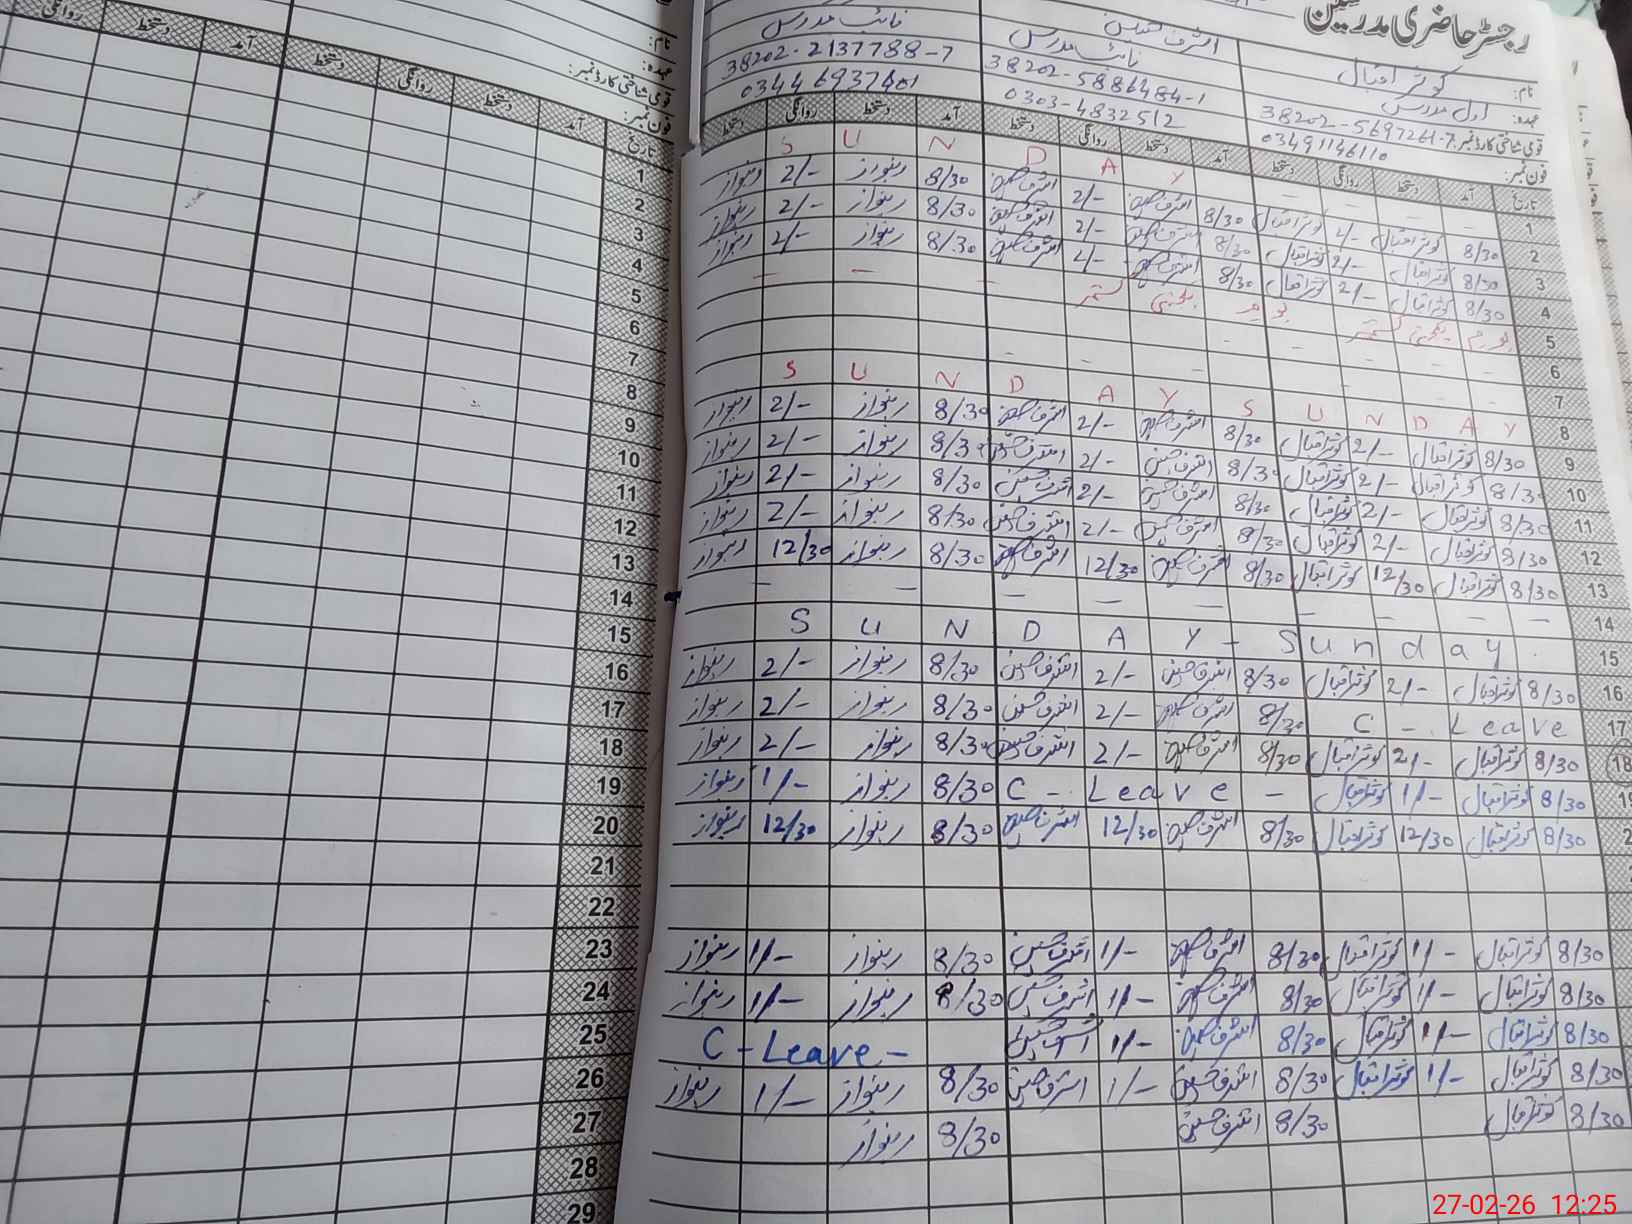 رجسٹر حاضری مدرسین
نام: کوثر اقبال
اشرف حسین
عہدہ: اول مدرس
نائب مدرس
نائب مدرس
قومی شناختی کارڈ نمبر: 38202-5697261-7
38202-5886484-1
38202-2137788-7
فون نمبر: 03491146110
0303-4832512
0344 6937401
تاریخ آمد دستخط روانگی دستخط آمد دستخط روانگی دستخط آمد دستخط روانگی دستخط
1 S U N D A Y
2 8/30 کوثر اقبال 2/- کوثر اقبال 8/30 اشرف حسین 2/- اشرف حسین 8/30 ربنواز 2/- ربنواز
3 8/30 کوثر اقبال 2/- کوثر اقبال 8/30 اشرف حسین 2/- اشرف حسین 8/30 ربنواز 2/- ربنواز
4 8/30 کوثر اقبال 2/- کوثر اقبال 8/30 اشرف حسین 2/- اشرف حسین 8/30 ربنواز 2/- ربنواز
5 یوم یکجہتی کشمیر یوم یکجہتی کشمیر - - -
6
7
8 S U N D A Y S U N D A Y
9 8/30 کوثر اقبال 2/- کوثر اقبال 8/30 اشرف حسین 2/- اشرف حسین 8/30 ربنواز 2/- ربنواز
10 8/30 کوثر اقبال 2/- کوثر اقبال 8/30 اشرف حسین 2/- اشرف حسین 8/30 ربنواز 2/- ربنواز
11 8/30 کوثر اقبال 2/- کوثر اقبال 8/30 اشرف حسین 2/- اشرف حسین 8/30 ربنواز 2/- ربنواز
12 8/30 کوثر اقبال 2/- کوثر اقبال 8/30 اشرف حسین 2/- اشرف حسین 8/30 ربنواز 2/- ربنواز
13 8/30 کوثر اقبال 12/30 کوثر اقبال 8/30 اشرف حسین 12/30 اشرف حسین 8/30 ربنواز 12/30 ربنواز
14 - - - - - - - - -
15 S U N D A Y - Sunday
16 8/30 کوثر اقبال 2/- کوثر اقبال 8/30 اشرف حسین 2/- اشرف حسین 8/30 ربنواز 2/- ربنواز
17 C - Leave 8/30 اشرف حسین 2/- اشرف حسین 8/30 ربنواز 2/- ربنواز
18 8/30 کوثر اقبال 2/- کوثر اقبال 8/30 اشرف حسین 2/- اشرف حسین 8/30 ربنواز 2/- ربنواز
19 8/30 کوثر اقبال 1/- کوثر اقبال C - Leave - 8/30 ربنواز 1/- ربنواز
20 8/30 کوثر اقبال 12/30 کوثر اقبال 8/30 اشرف حسین 12/30 اشرف حسین 8/30 ربنواز 12/30 ربنواز
21
22
23 8/30 کوثر اقبال 1/- کوثر اقبال 8/30 اشرف حسین 1/- اشرف حسین 8/30 ربنواز 1/- ربنواز
24 8/30 کوثر اقبال 1/- کوثر اقبال 8/30 اشرف حسین 1/- اشرف حسین 8/30 ربنواز 1/- ربنواز
25 8/30 کوثر اقبال 1/- کوثر اقبال 8/30 اشرف حسین 1/- اشرف حسین C - Leave -
26 8/30 کوثر اقبال 1/- کوثر اقبال 8/30 اشرف حسین 1/- اشرف حسین 8/30 ربنواز 1/- ربنواز
27 8/30 کوثر اقبال 8/30 اشرف حسین 8/30 ربنواز
28
29
نام:
عہدہ:
قومی شناختی کارڈ نمبر:
فون نمبر:
تاریخ آمد دستخط روانگی دستخط آمد دستخط روانگی
27-02-26 12:25